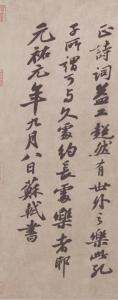 正詩詞益工超然有世外之樂此孔
子所謂可与久處約長處樂者耶
元祐元年九月八日蘇軾書